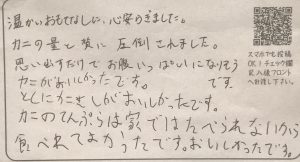 温かいおもてなしに、心安らぎました。
カニの量と質に圧倒されました。
思い出すだけでお腹いっぱいになりそう
です。
カニがおいしかったです。
とくにカニさしがおいしかったです。
カニのてんぷらは家ではたべられないから
食べれてよかったです。おいしかったです。
スマホでも投稿
OK！チェック欄
記入後フロント
へお渡し下さい。